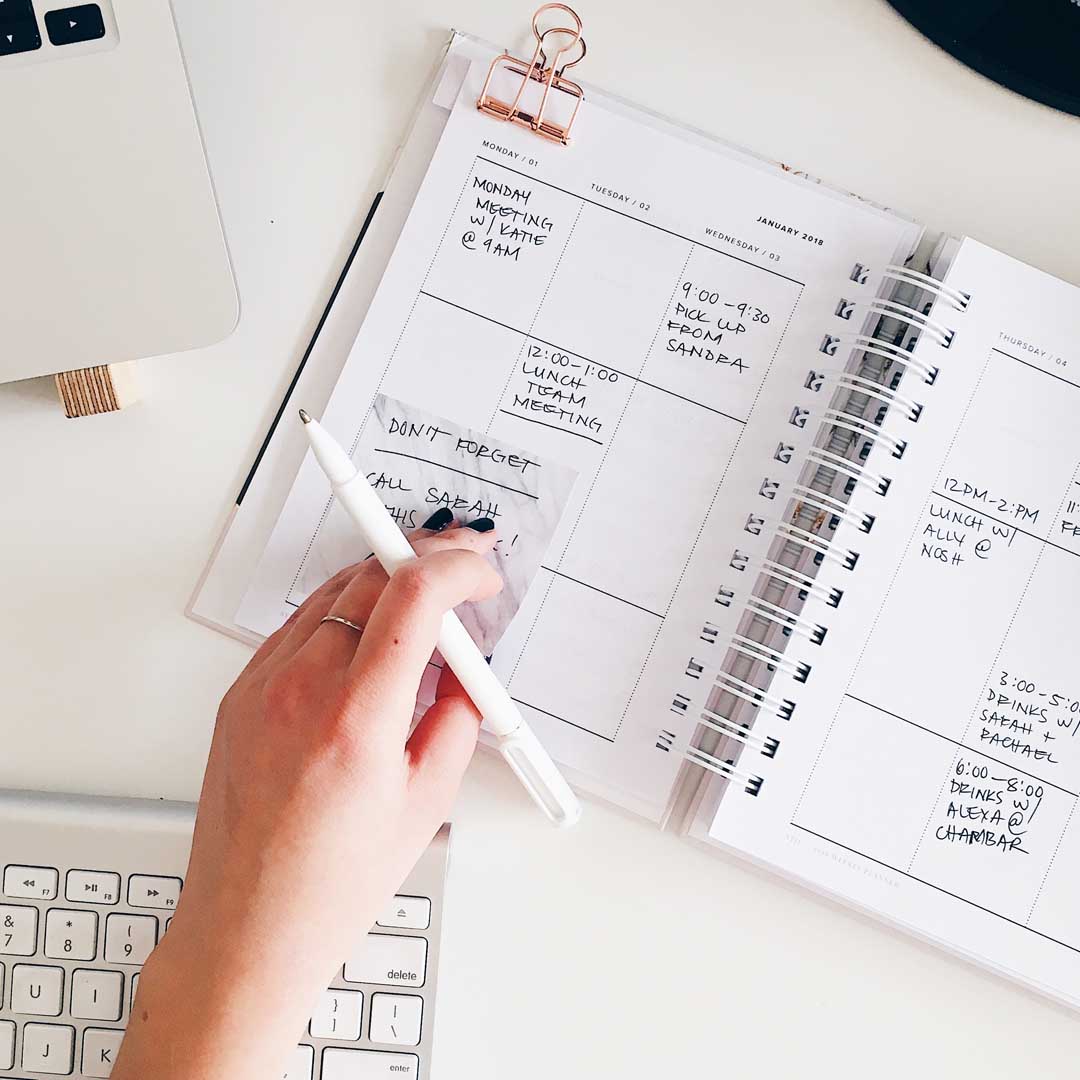 MONDAY / 01
TUESDAY / 02
JANUARY 2018
WEDNESDAY / 03
MONDAY
MEETING
W/ KATIE
@ 9AM
9:00-9:30
PICK UP
FROM
SANDRA
12:00-1:00
LUNCH
TEAM
MEETING
DON'T FORGET
CALL SARAH
THIS
THURSDAY / 04
12PM-2:PM
LUNCH W/
ALLY @
NOSH
3:00-5:00
DRINKS W/
SARAH +
RACHAEL
6:00-8:00
DRINKS W/
ALEXA @
CHAMBAR
2018 WEEKLY PLANNER
F7
F8
F9
&
7
*
8
(
9
U
I
J
K
delete
}
]
|
\
enter